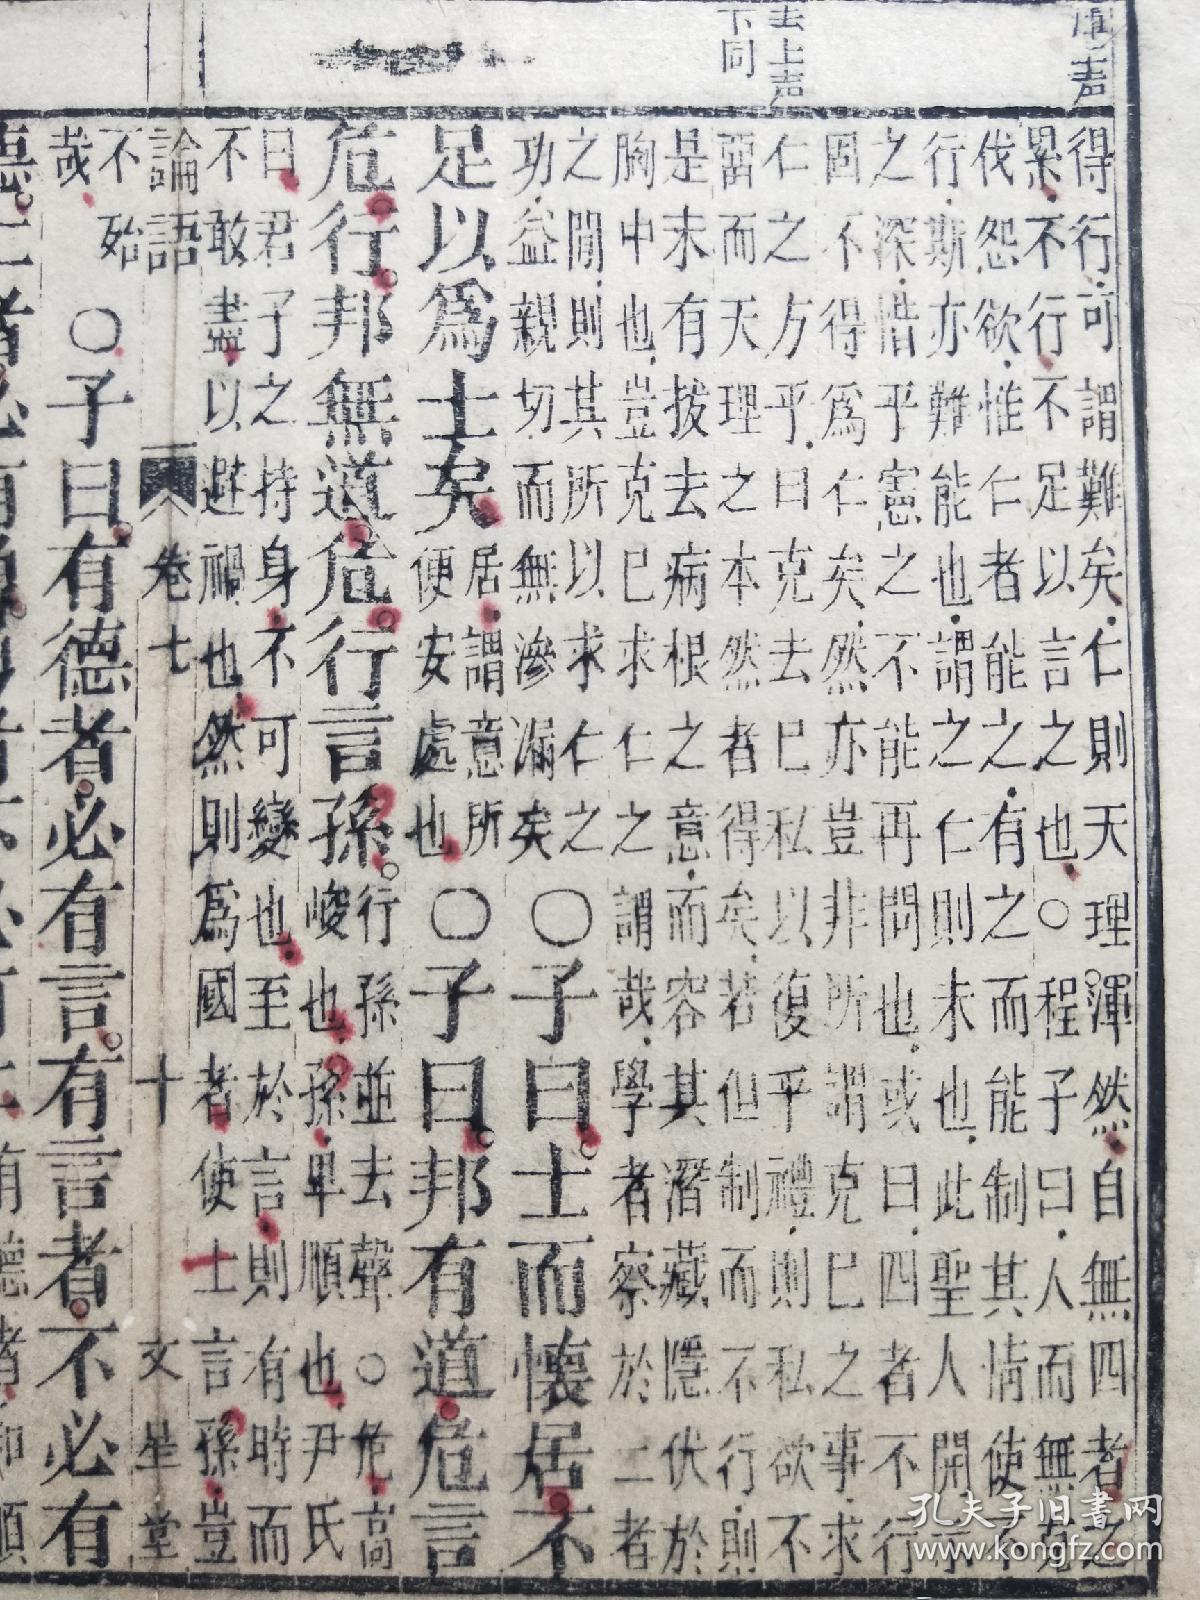 渾上声
去上声
下同
得行可謂難矣仁則天理渾然自無四者之
累不行不足以言之也○程子曰人而無克
伐怨欲惟仁者能之有之而能制其情使不
行斯亦難能也謂之仁則未也此聖人開示
之深惜乎憲之不能再問也或曰四者不行
固不得爲仁矣然亦豈非所謂克已之事求
仁之方乎曰克去已私以復乎禮則私欲不
畱而天理之本然者得矣若但制而不行則
是未有拔去病根之意而容其潛藏隱伏於
胸中也豈克已求仁之謂哉學者察於二者
之閒則其所以求仁之
功益親切而無滲漏矣
○子曰士而懷居不
足以爲士矣
居謂意所
便安處也
○子曰邦有道危言
危行邦無道危行言孫
行孫並去聲○危高
峻也孫卑順也尹氏
曰君子之持身不可變也至於言則有時而
不敢盡以避禍也然則爲國者使士言孫豈
論語 卷七 十 文星堂
不殆
哉
○子曰有德者必有言有言者不必有
孔夫子旧书网
www.kongfz.com